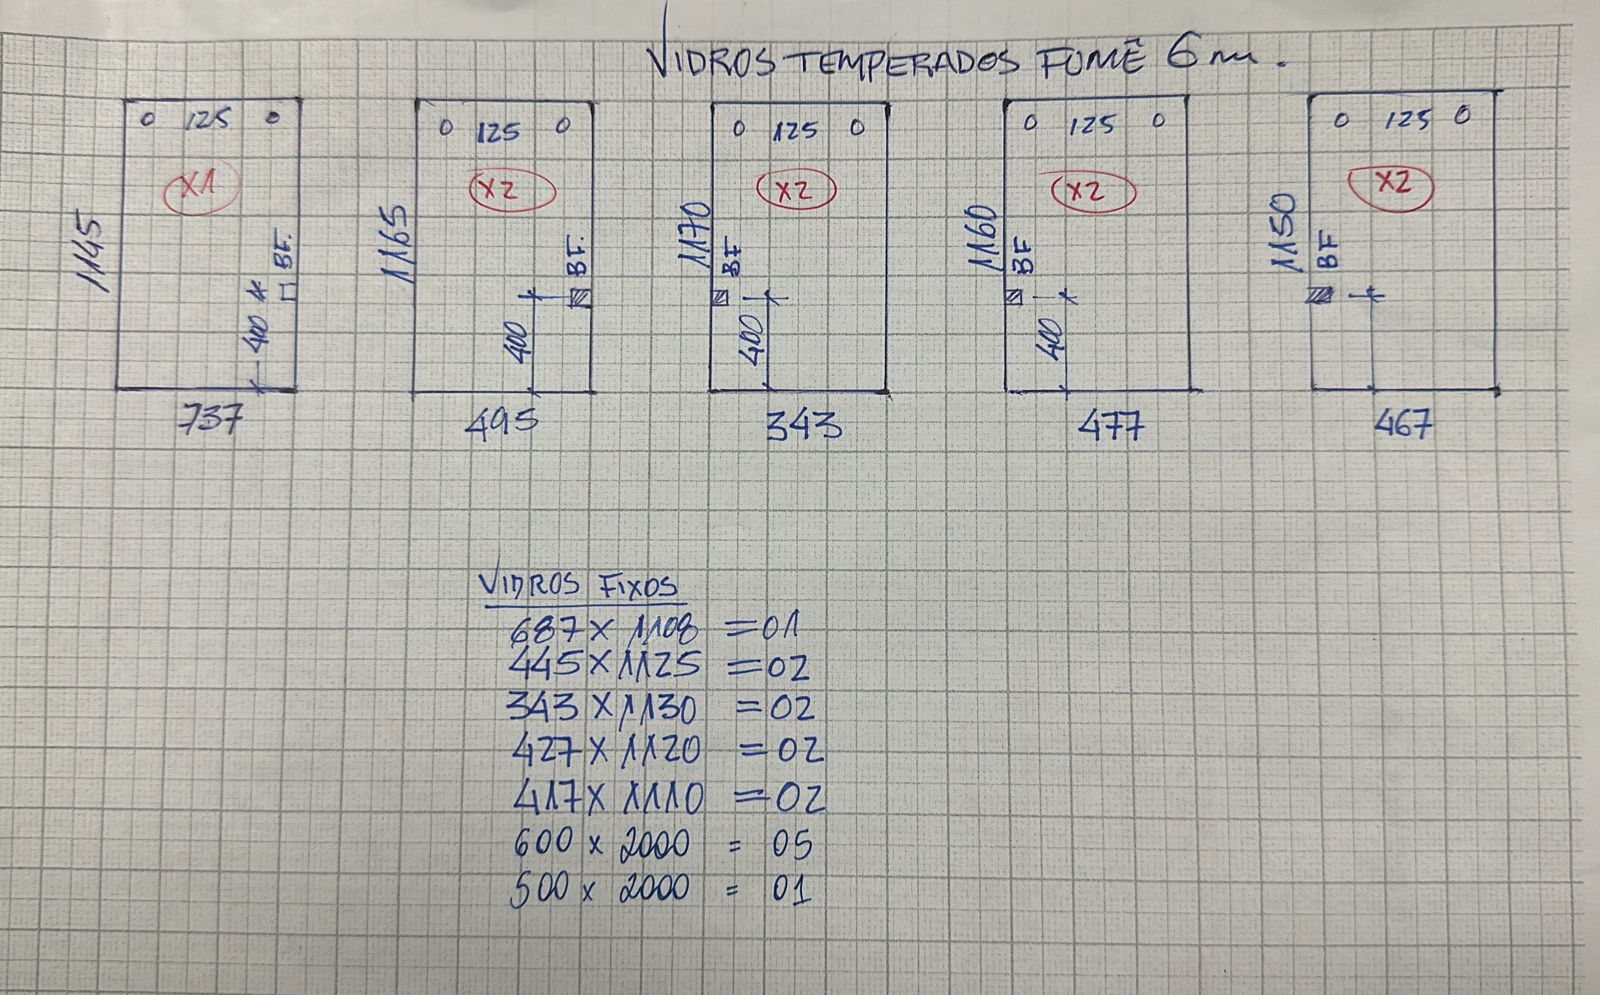 VIDROS TEMPERADOS FUMÊ 6 mm.
125
X1
1145
BF.
400
737
125
X2
1165
BF.
400
495
125
X2
1170
BF
400
343
125
X2
1160
BF
400
477
125
X2
1150
BF
467
VIDROS FIXOS
687 X 1108 = 01
445 X 1125 = 02
343 X 1130 = 02
427 X 1120 = 02
417 X 1110 = 02
600 x 2000 = 05
500 x 2000 = 01